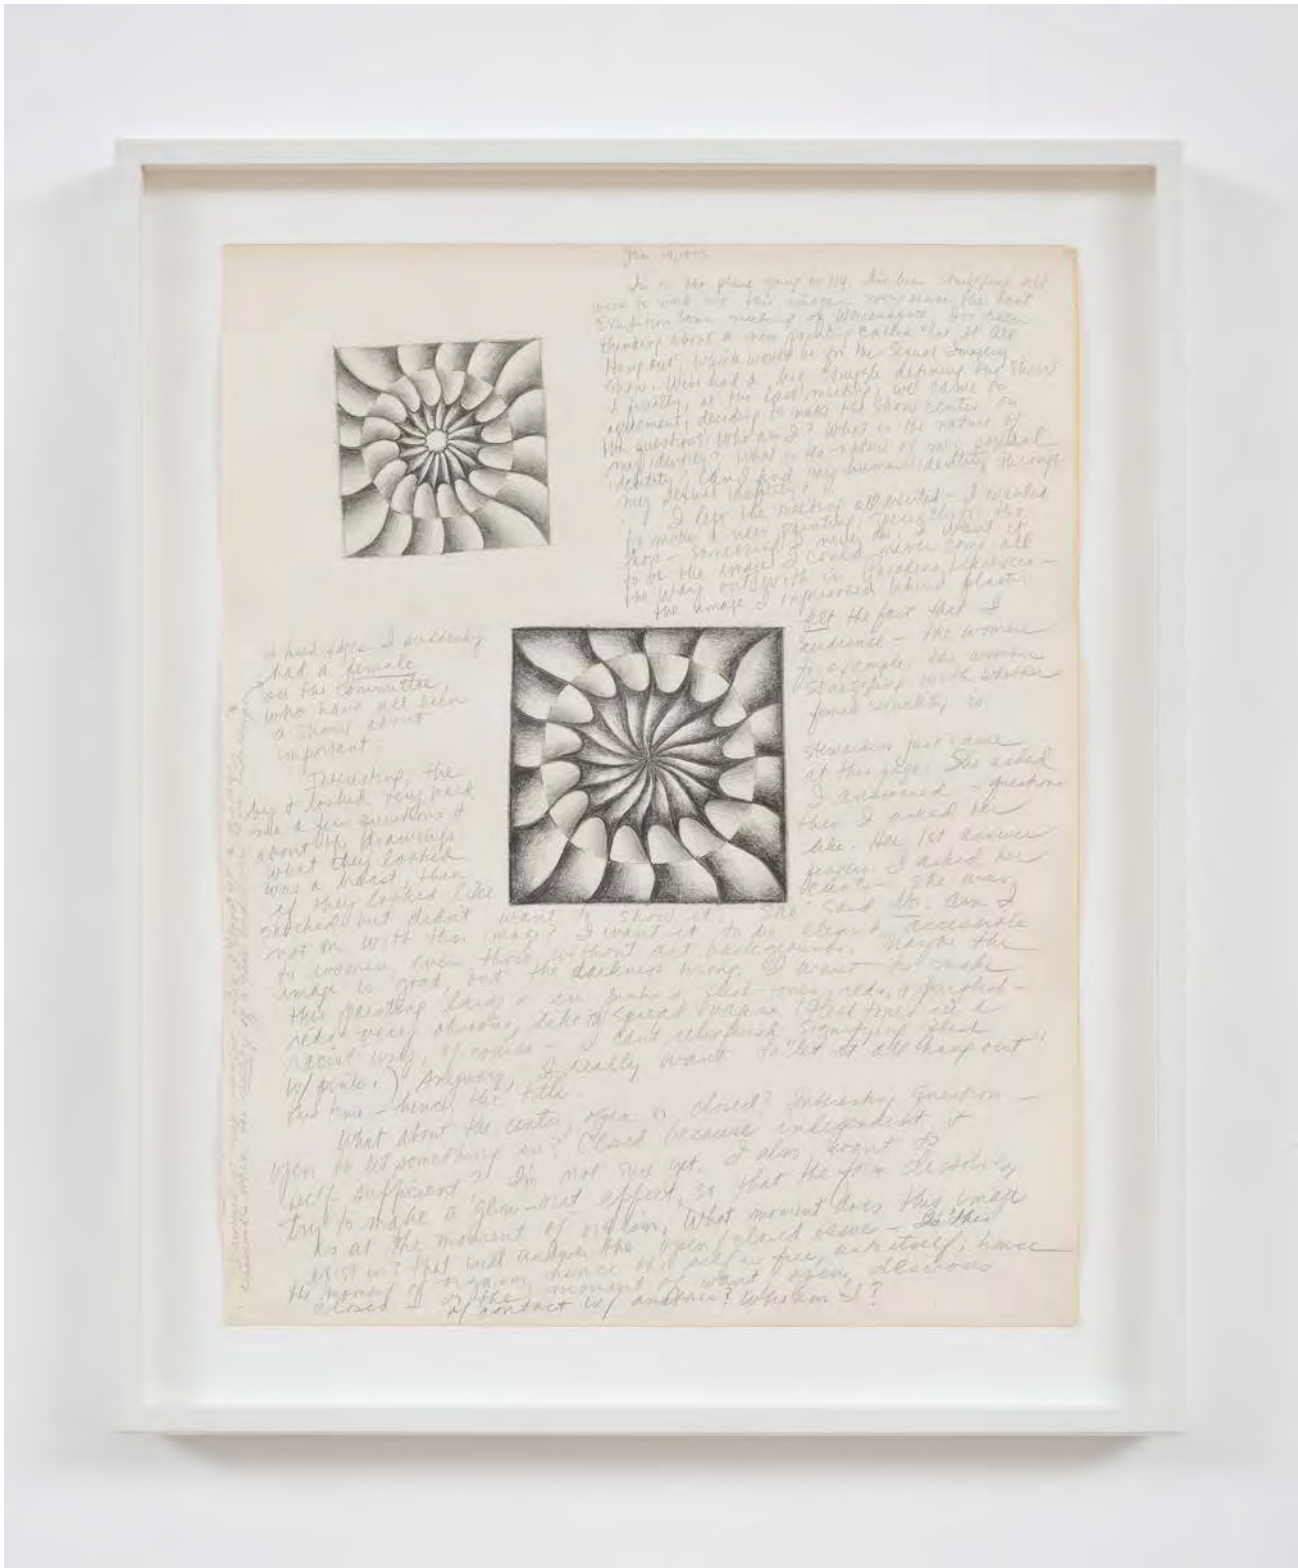 Jan 10, 1973
I'm on the plane going to NY. I've been struggling all
week to work out this image. ever since the last
Exhibition Com. meeting of Womanspace, I've been
thinking about a new painting called "Let It All
Hang Out", which would be for the Sexual Imagery
Show. We've had a big struggle defining the show
& finally, at the last meeting, we came to
agreement, deciding to make the show center on
the questions: Who am I? What is the nature of
my identity? What is the nature of my sexual
identity? Can I find my human identity through
my sexual identity?
I left the meeting all excited – I wanted
to make a new painting, specifically for the
show – something I never do. I want it
to be the image I could never come all
the way out with in
the image I imprisoned behind plastic
& hard edges. I suddenly felt the fact that I
had a female audience – the women
on the committee, for example, the women
who have all been struggling with whether
a show about female sexuality is
important.
Interesting, the stewardess just came
by & looked very hard at this page. She asked
me a few questions & I answered – questions
about the drawings. Then I asked her
what they looked like. Her 1st answer
was a breast, then fingers. I asked her
if they looked like cunts – she was
shocked but didn't want to show it. She said No. Am I
not on with this image? I want it to be clear & accessible
to women, even those without art backgrounds. Maybe the
image is good, but the darkness wrong. I want to make
this painting large & in pinks & flesh-tones, reds, & purplish-
reds – very obvious, like a spread vagina (Flesh tones in a
racist way, of course – I can't relinquish signifying flesh
w/ pink.) Anyway, I really want to "let it all hang out"
this time – hence, the title.
What about the center, open or closed? Interesting question –
open to let something in? Closed because independent &
self-sufficient? I'm not sure yet. I also want to
try to make a glow-out effect, so that the form dissolves
as at the moment of orgasm, What moment does this image
exist in? that will answer the open/closed issue – Is this
the moment of orgasm, hence the self is free, into itself, hence
closed – or the moment of want, open, desirous
of contact w/ another? Who am I?